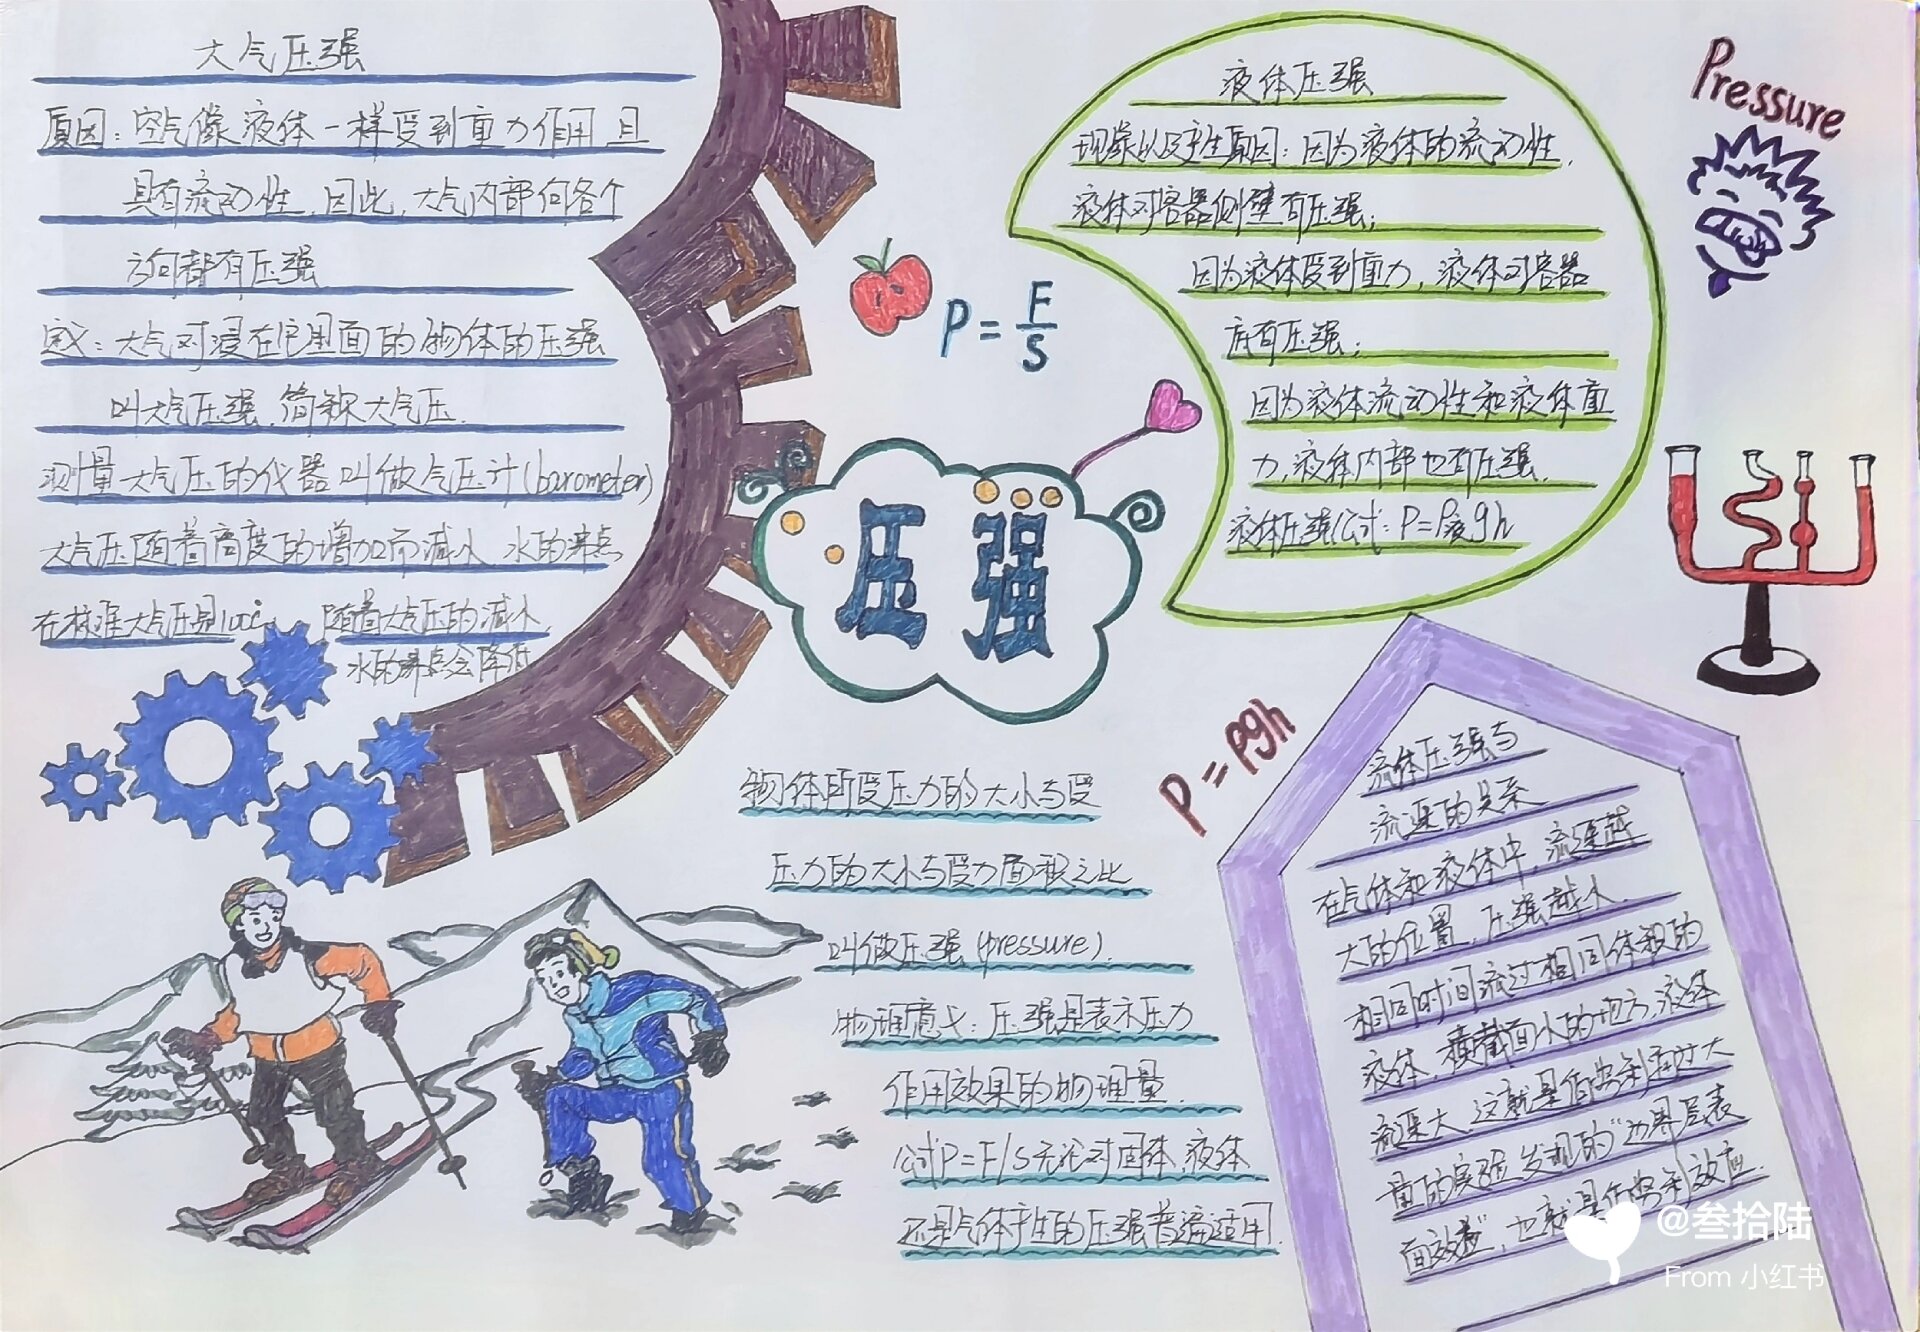 大气压强
原因：空气像液体一样受到重力作用且
具有流动性，因此，大气内部向各个
方向都有压强
定义：大气对浸在它里面的物体的压强
叫大气压强，简称大气压.
测量大气压的仪器叫做气压计(barometer)
大气压随着高度的增加而减小 水的沸点
在标准大气压是100℃ 随着大气压的减小
水的沸点会降低
P=F/S
压强
液体压强
现象以及产生原因：因为液体的流动性，
液体对容器侧壁有压强；
因为液体受到重力，液体对容器
底有压强；
因为液体流动性和液体重
力，液体内部也有压强.
液体压强公式：P=ρ液gh
Pressure
物体所受压力的大小与受
压力的大小与受力面积之比
叫做压强(pressure).
物理意义：压强是表示压力
作用效果的物理量.
公式P=F/S无论对固体、液体
还是气体产生的压强普遍适用.
P=ρgh
流体压强与
流速的关系
在气体和液体中，流速越
大的位置，压强越小.
相同时间流过相同体积的
液体，横截面小的地方，液体
流速大，这就是伯努利通过大
量的实验，发现的“边界层表
面效应”，也就是伯努利效应.
@叁拾陆
From 小红书